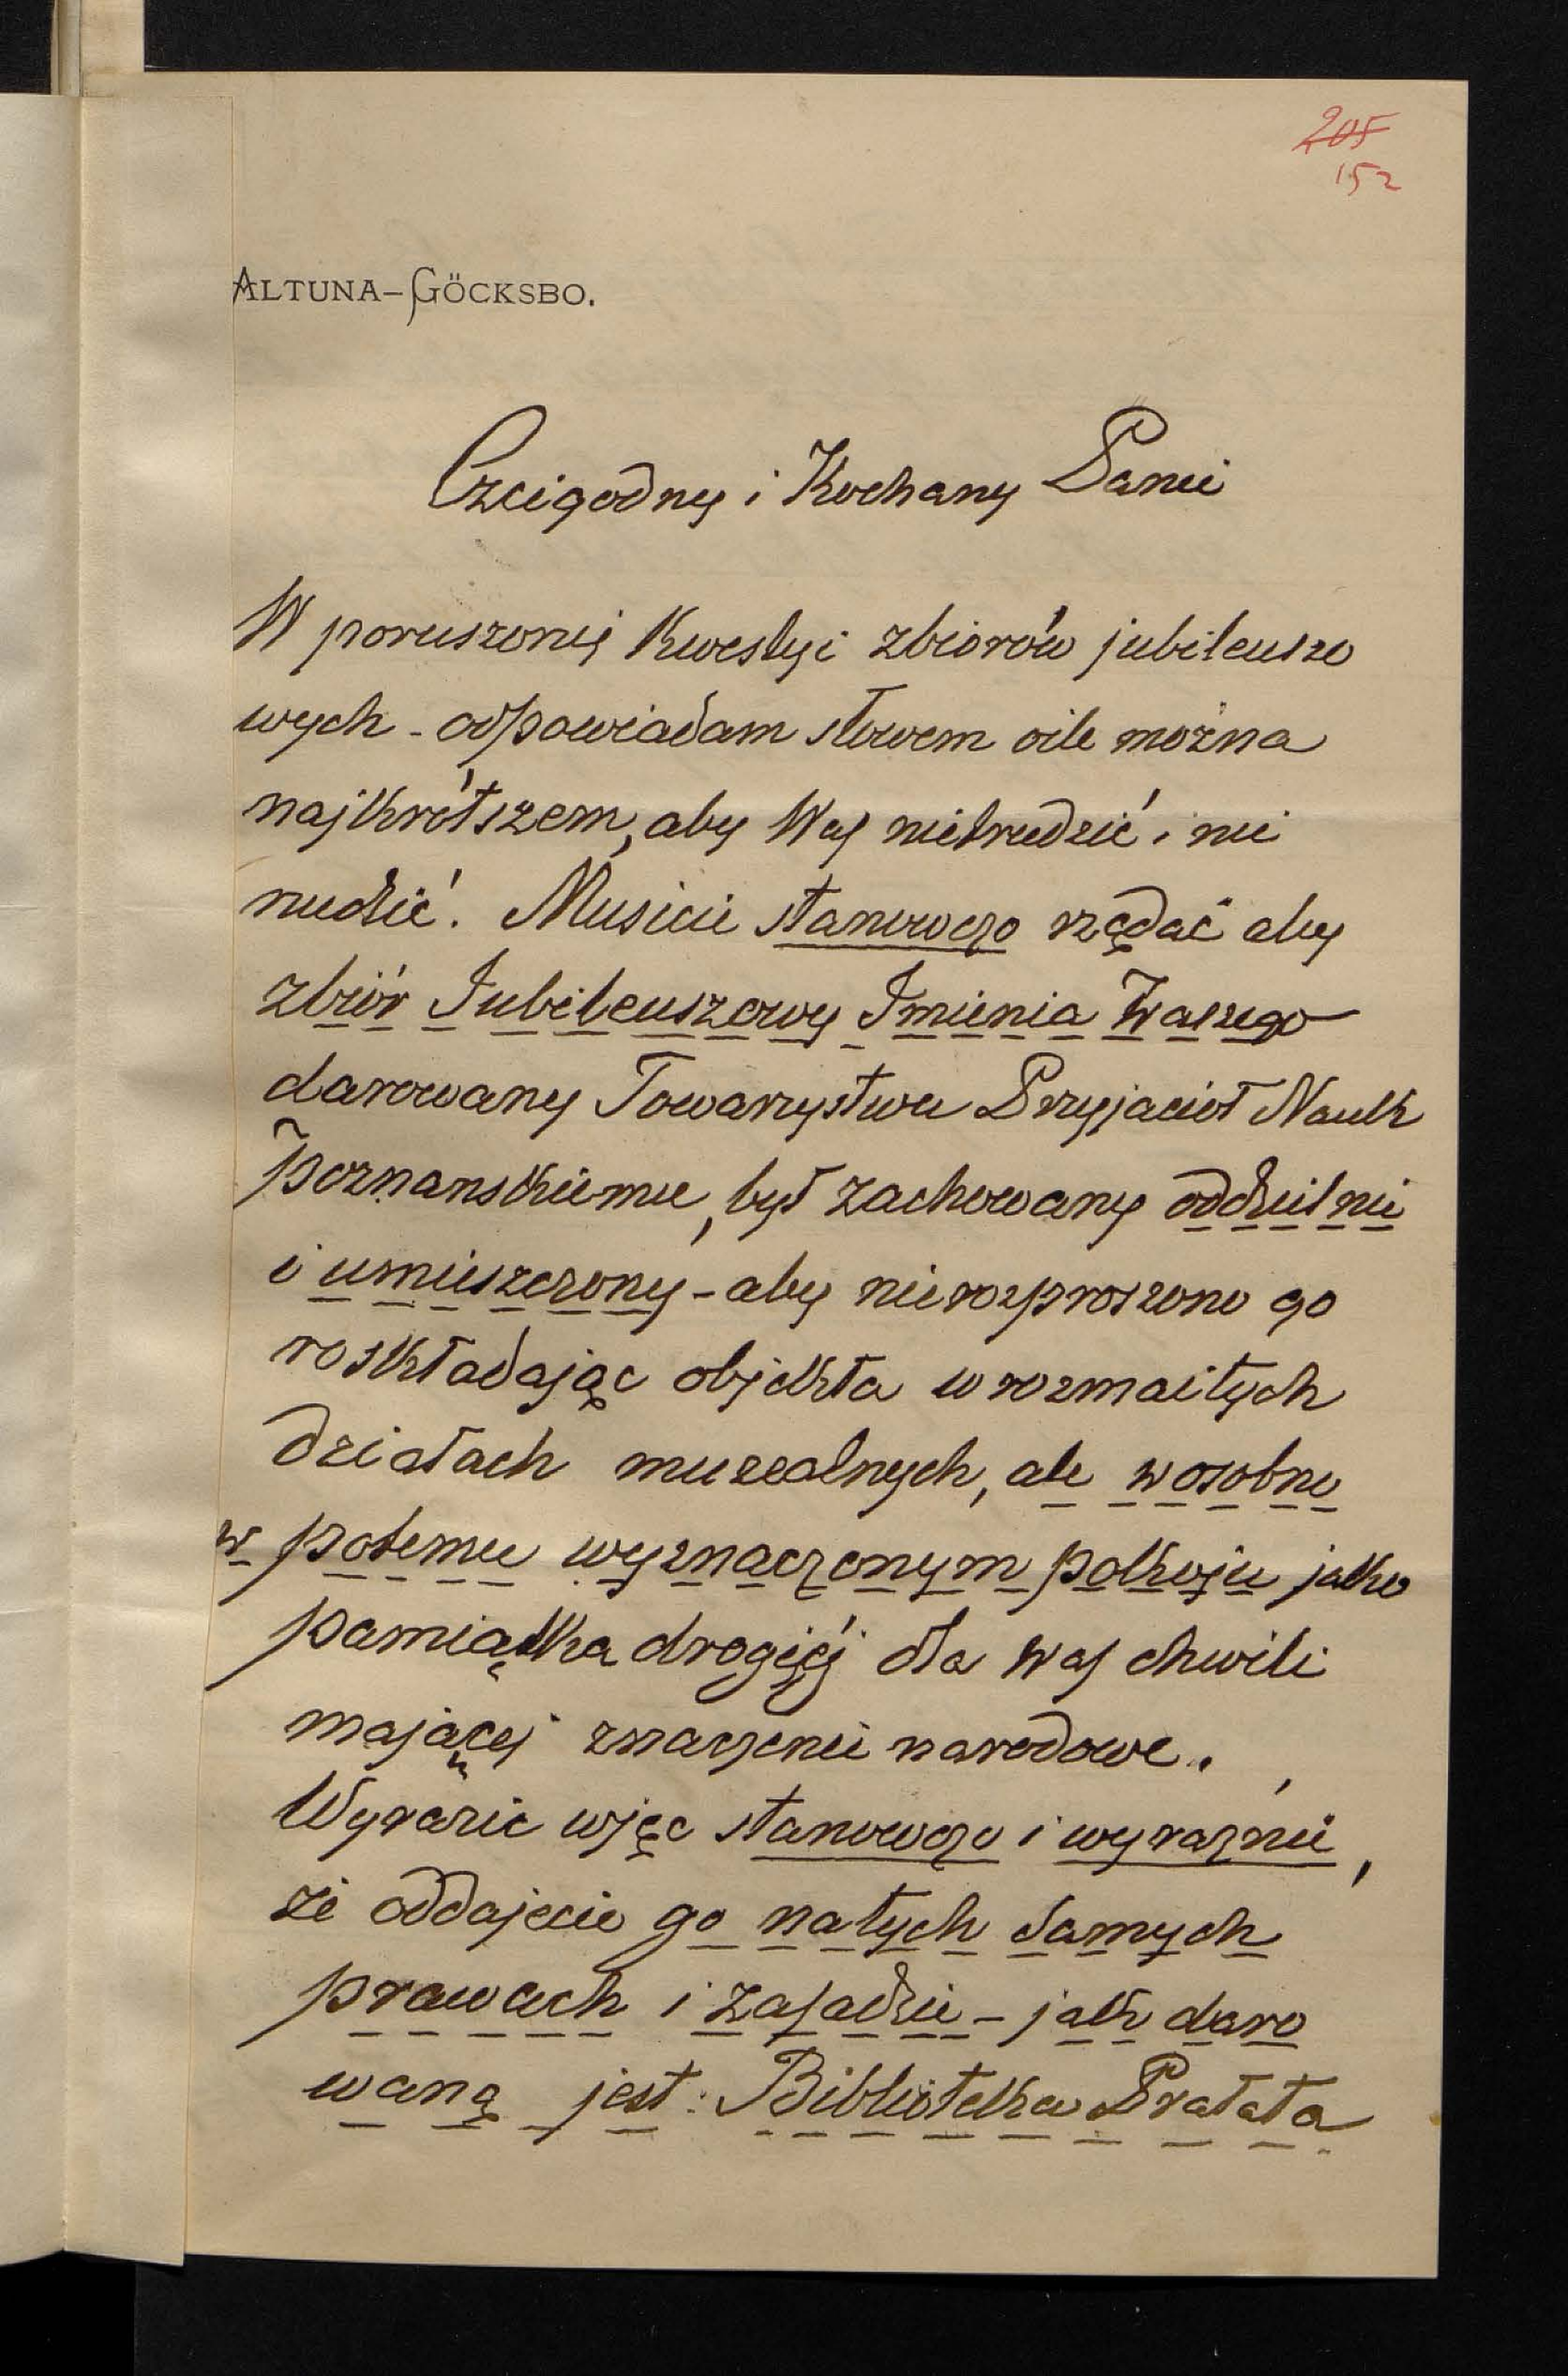 205
152
ALTUNA-GÖCKSBO.
Czcigodny i Kochany Panie
W poruszonéj Kwestyi zbiorów jubileuszo
wych - odpowiadam słowem oile można
najkrótszem, aby Was nietrudzić i nie
nudzić. Musicie stanowczo rządać aby
zbiór Jubileuszowy Imienia Waszego
darowany Towarzystwu Przyjaciół Nauk
Poznanskiemu, był zachowany oddzielnie
i umieszczony - aby nierozproszono go
roskładając objekta w rozmaitych
działach muzealnych, ale w osobno
w potemu wyznaczonym pokoju jako
pamiątka drogiéj dla Was chwili
mającej znaczenie narodowe.
Wyrazić więc stanowczo i wyraznie,
że oddajecie go natych samych
prawach i zasadzie - jak daro
waną jest Biblioteka Prałata